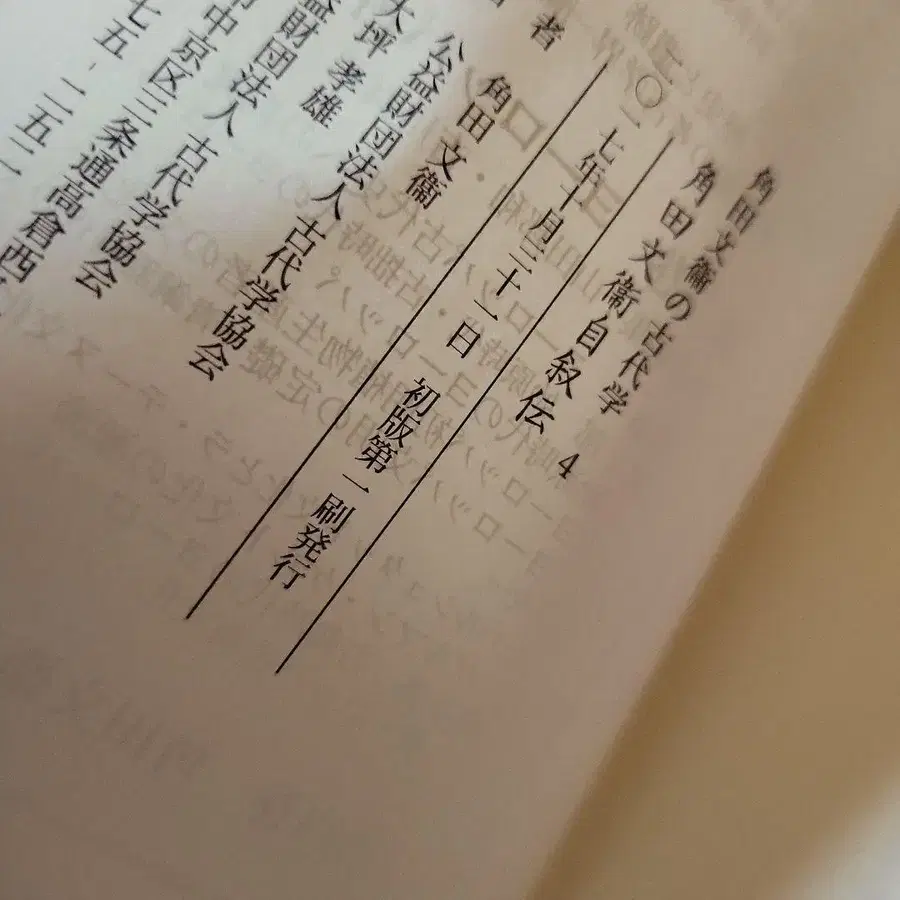 角田文衞の古代学 4
角田文衞自叙伝
〇一七年十月三十一日 初版第一刷発行
者 角田 文衞
公益財団法人 古代学協会
大坪 孝雄
益財団法人 古代学協会
中京区三条通高倉西
七五‐二五二